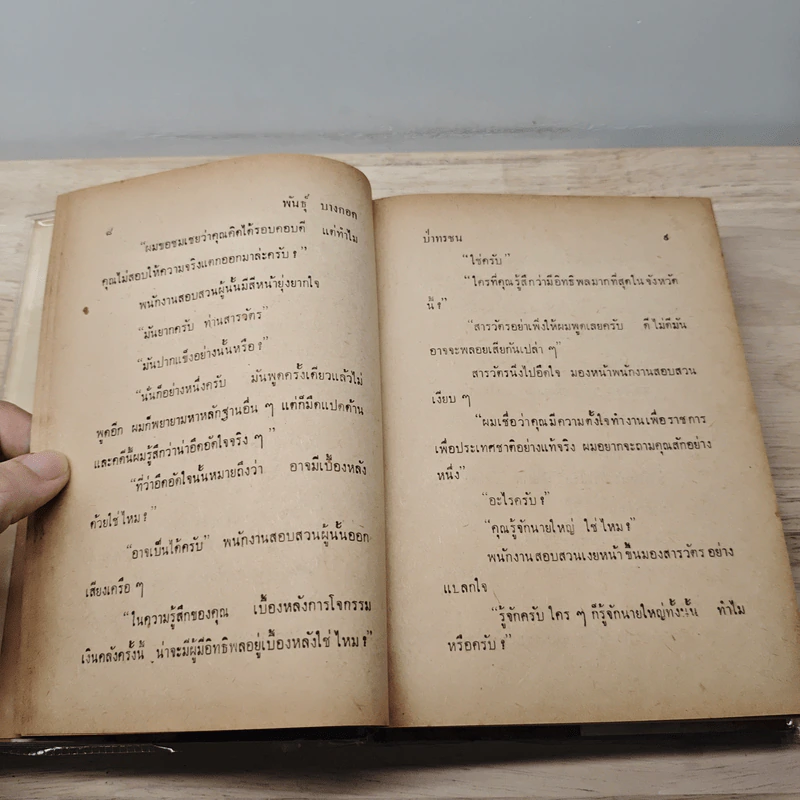 ๘
พันธุ์ บางกอก
“ผมขอชมเชยว่าคุณคิดได้รอบคอบดี แต่ทำไม
คุณไม่สอบให้ความจริงแตกออกมาล่ะครับ ?”
พนักงานสอบสวนผู้นั้นมีสีหน้ายุ่งยากใจ
“มันยากครับ ท่านสารวัตร”
“มันปากแข็งอย่างนั้นหรือ ?”
“นั่นก็อย่างหนึ่งครับ มันพูดครั้งเดียวแล้วไม่
พูดอีก ผมก็พยายามหาหลักฐานอื่น ๆ แต่ก็มืดแปดด้าน
และคดีนี้ผมรู้สึกว่าน่าอึดอัดใจจริง ๆ”
“ที่ว่าอึดอัดใจนั้นหมายถึงว่า อาจมีเบื้องหลัง
ด้วยใช่ไหม ?”
“อาจเป็นได้ครับ” พนักงานสอบสวนผู้นั้นออก
เสียงเครือ ๆ
“ในความรู้สึกของคุณ เบื้องหลังการโจรกรรม
เงินคลังครั้งนี้ น่าจะมีผู้มีอิทธิพลอยู่เบื้องหลังใช่ไหม ?”
ป่าทรชน
๙
“ใช่ครับ”
“ใครที่คุณรู้สึกว่ามีอิทธิพลมากที่สุดในจังหวัด
นี้ ?”
“สารวัตรอย่าเพิ่งให้ผมพูดเลยครับ ดีไม่ดีมัน
อาจจะพลอยเสียกันเปล่า ๆ”
สารวัตรนิ่งไปอึดใจ มองหน้าพนักงานสอบสวน
เงียบ ๆ
“ผมเชื่อว่าคุณมีความตั้งใจทำงานเพื่อราชการ
เพื่อประเทศชาติอย่างแท้จริง ผมอยากจะถามคุณสักอย่าง
หนึ่ง”
“อะไรครับ ?”
“คุณรู้จักนายใหญ่ ใช่ไหม ?”
พนักงานสอบสวนเงยหน้าขึ้นมองสารวัตรอย่าง
แปลกใจ
“รู้จักครับ ใคร ๆ ก็รู้จักนายใหญ่ทั้งนั้น ทำไม
หรือครับ ?”